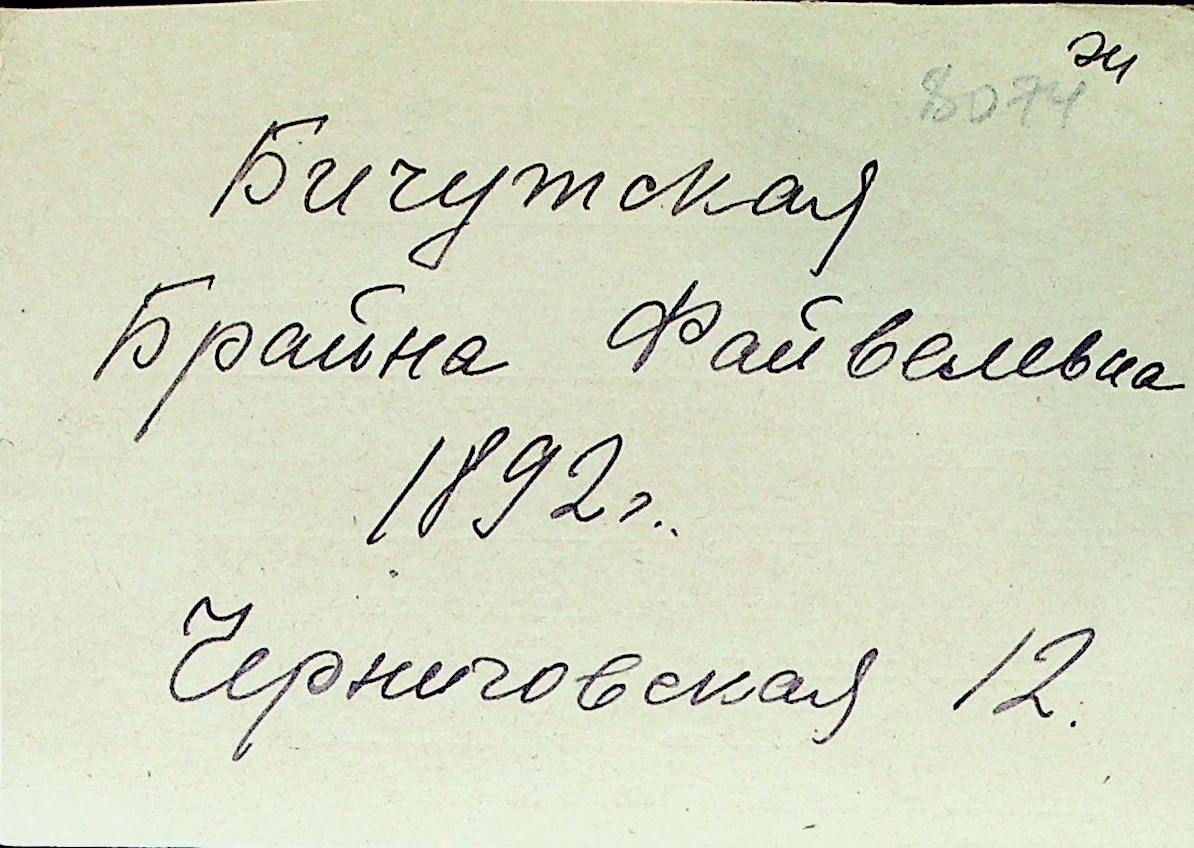 8074
Бичутская
Брайна Файвелевна
1892 г.
Черниговская 12.